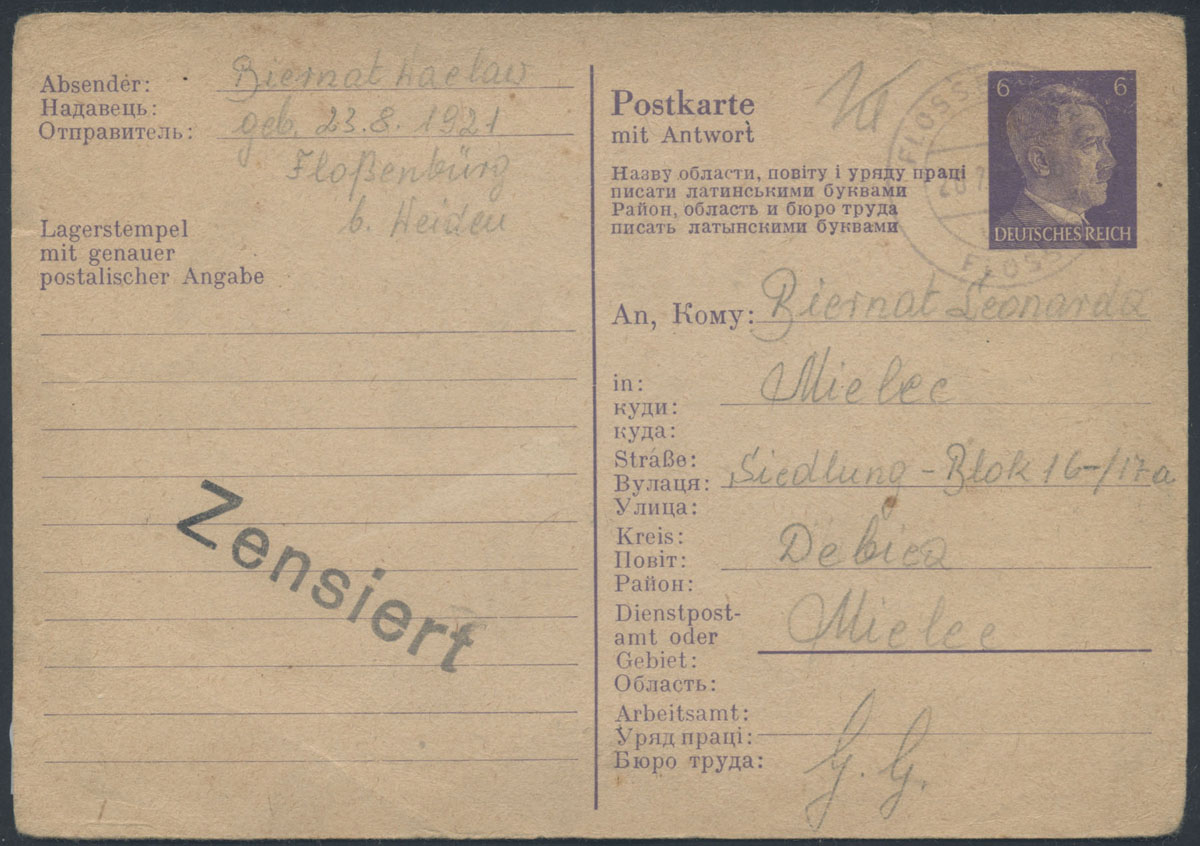 Absender: Biernat Wacław
Надавець: geb. 23.8.1921
Отправитель:
Floßenbürg
b. Weiden
Lagerstempel
mit genauer
postalischer Angabe
Zensiert
Postkarte
mit Antwort
Назву области, повіту і уряду праці
писати латинськими буквами
Район, область и бюро труда
писать латынскими буквами
FLOSS
6 6
DEUTSCHES REICH
FLOSS
An, Кому: Biernat Leonarda
in: Mielec
куди:
куда:
Straße: Siedlung - Blok 16-/17a
Вулаця:
Улица:
Kreis: Debica
Повіт:
Район:
Dienstpost-
amt oder Mielec
Gebiet:
Область:
Arbeitsamt:
Уряд праці:
Бюро труда: G.G.